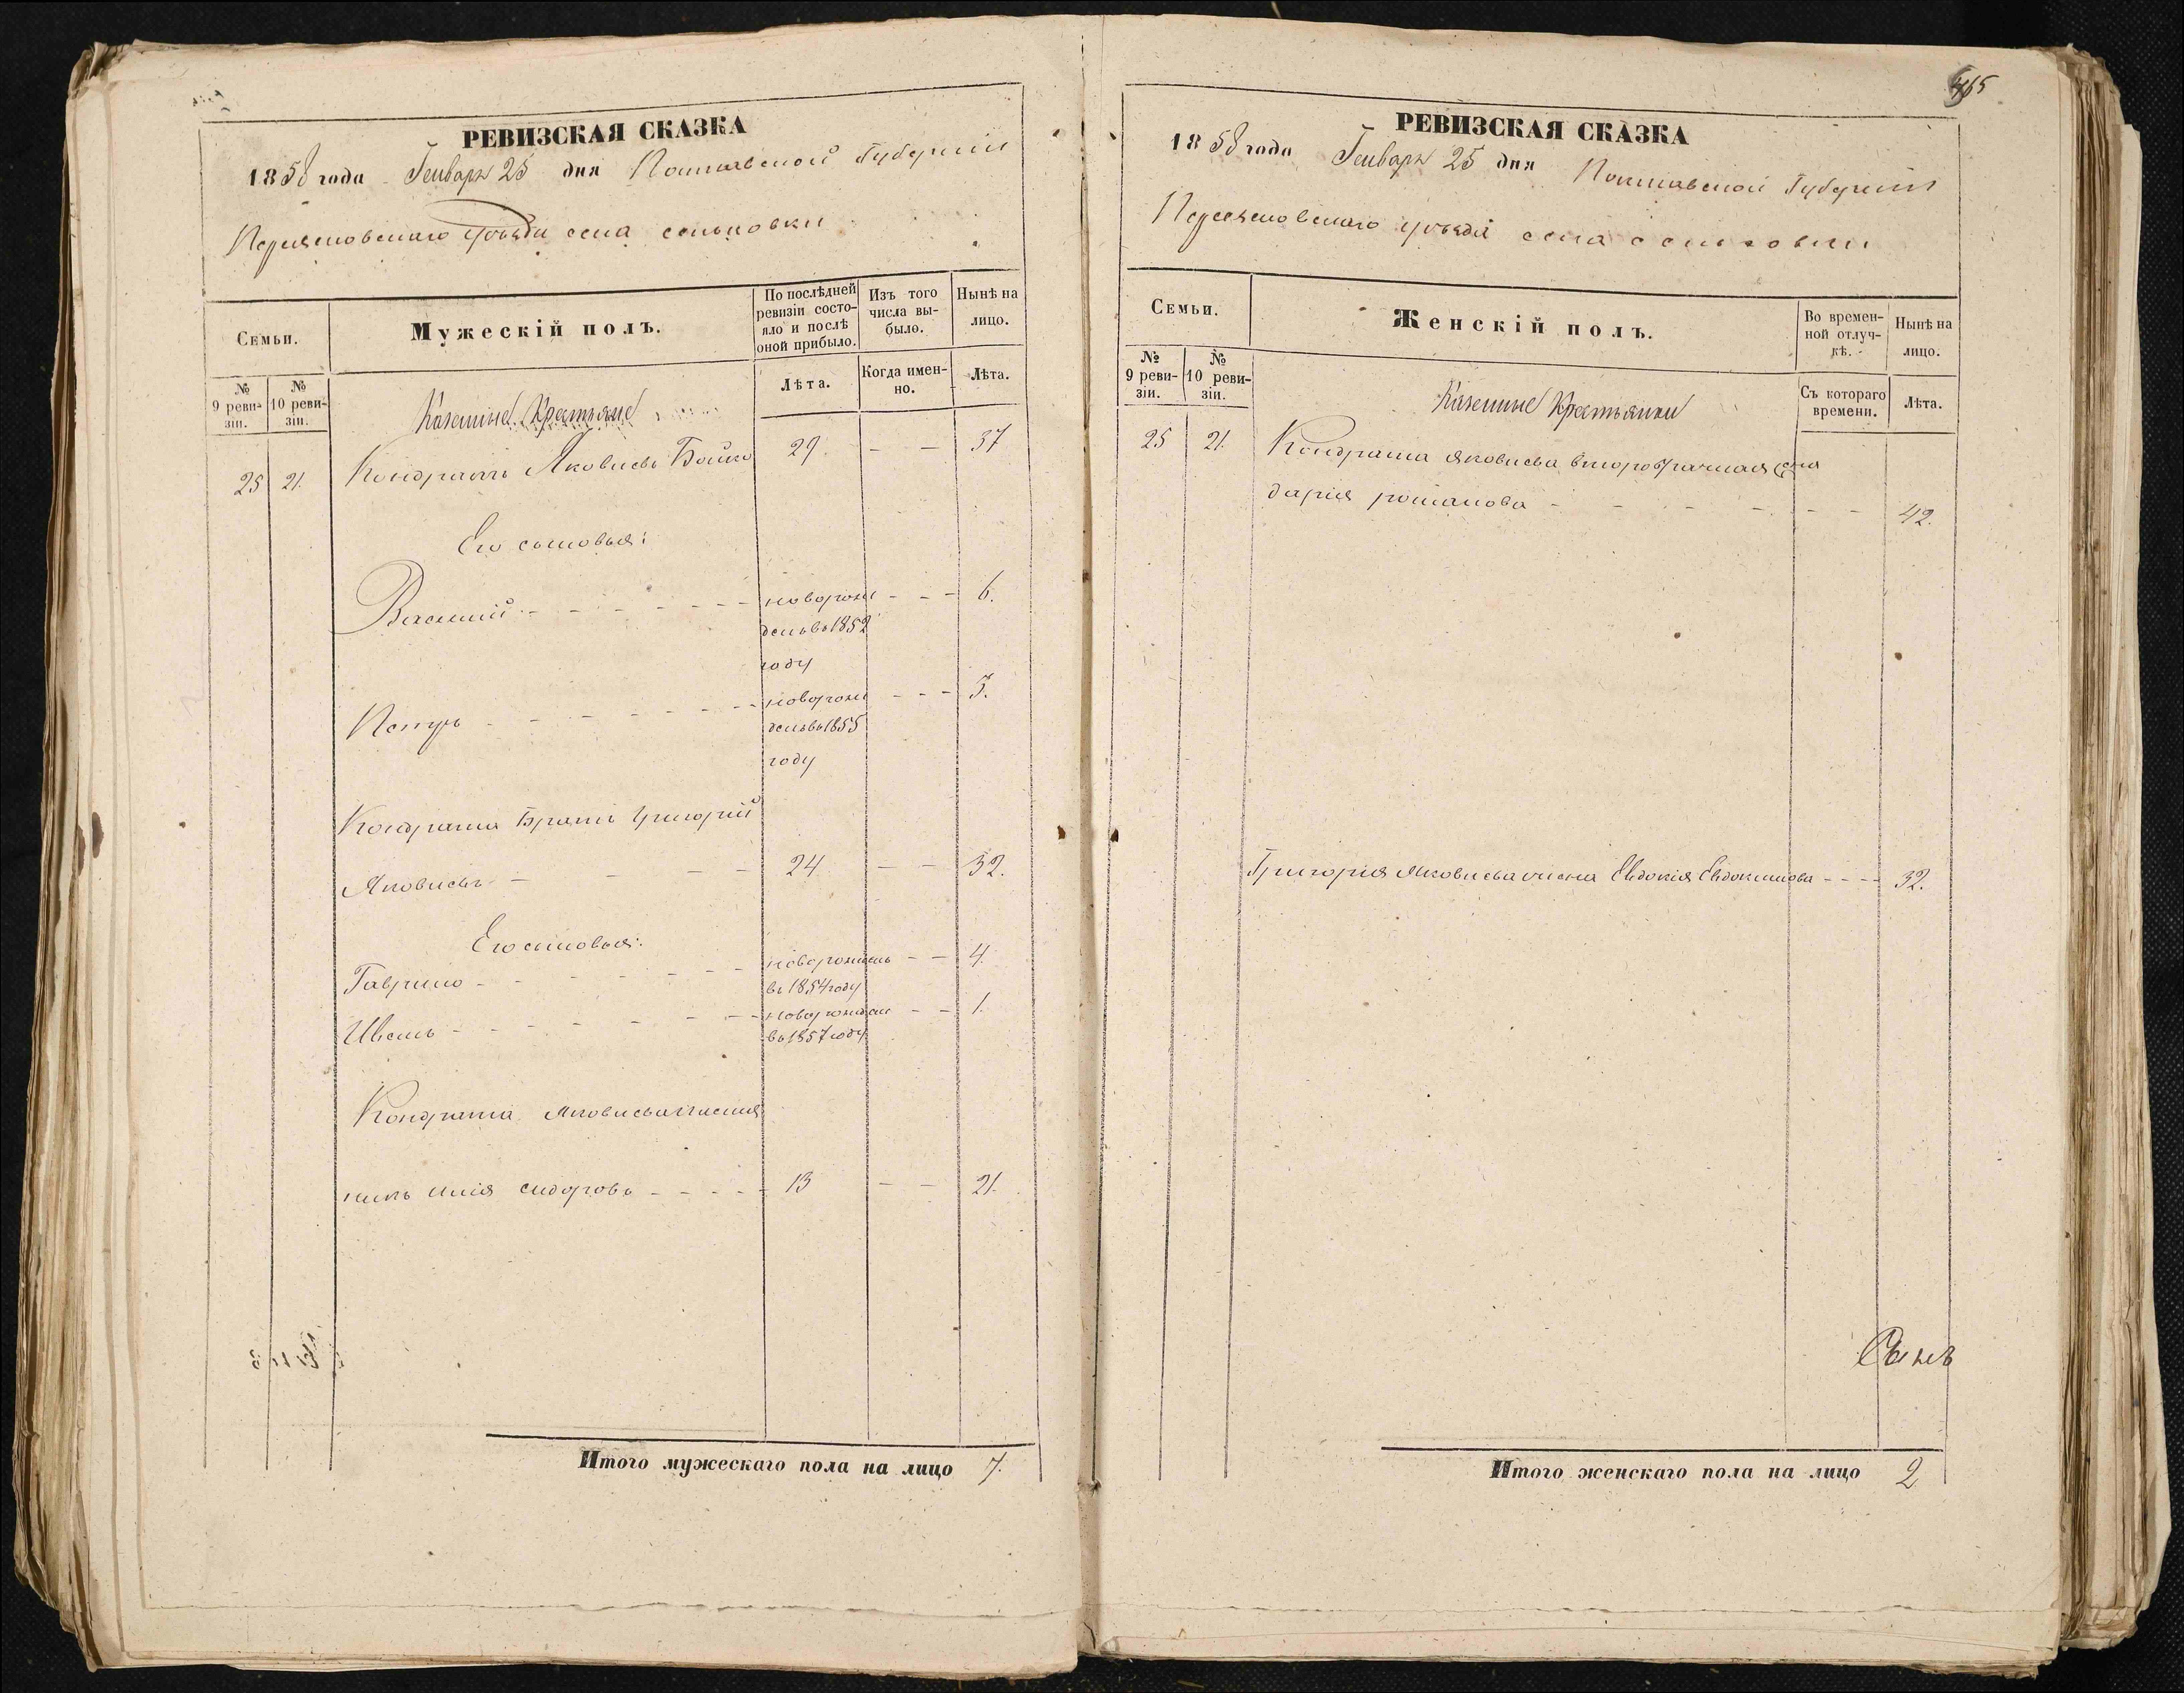 РЕВИЗСКАЯ СКАЗКА
1858 года Генваря 25 дня Полтавской Губерніи
Переясловскаго уѣзда села сеньковки
Семьи.
Мужескій полъ.
По послѣдней ревизіи состояло и послѣ оной прибыло.
Изъ того числа выбыло.
Нынѣ на лицо.
№ 9 ревизіи.
№ 10 ревизіи.
Лѣта.
Когда именно.
Лѣта.
Казенные Крестьяне
25 21. Кондратъ Яковлевъ Бойко 29. — — 37
Его сыновья:
Василий - - - - - - новорож - - - 6.
денъ въ 1852
году
Петръ - - - - - - новорож - - - 3.
денъ въ 1855
году
Кондрата Братъ Григорий
Яковлевъ - - - - 24 — — 32.
Его сыновья:
Гаврило - - - - - - новорожденъ - - 4.
въ 1854 году
Иванъ - - - - - - новорожден - - 1.
въ 1857 году
Кондрата Яковлева племян
никъ Илія сидоровъ - - - - 13 — — 21.
Итого мужескаго пола на лицо 7.
465
РЕВИЗСКАЯ СКАЗКА
1858 года Генваря 25 дня Полтавской Губерніи
Переясловскаго уѣзда села сеньковки
Семьи.
Женскій полъ.
Во временной отлучкѣ.
Нынѣ на лицо.
№ 9 ревизіи.
№ 10 ревизіи.
Съ котораго времени.
Лѣта.
Казенные Крестьянки
25 21. Кондрата Яковлева второбрачная жена
дарія романова - - - - - - 42.
Григорія Яковлева жена Евдокія Евдокимова - - - - 32.
Итого женскаго пола на лицо 2